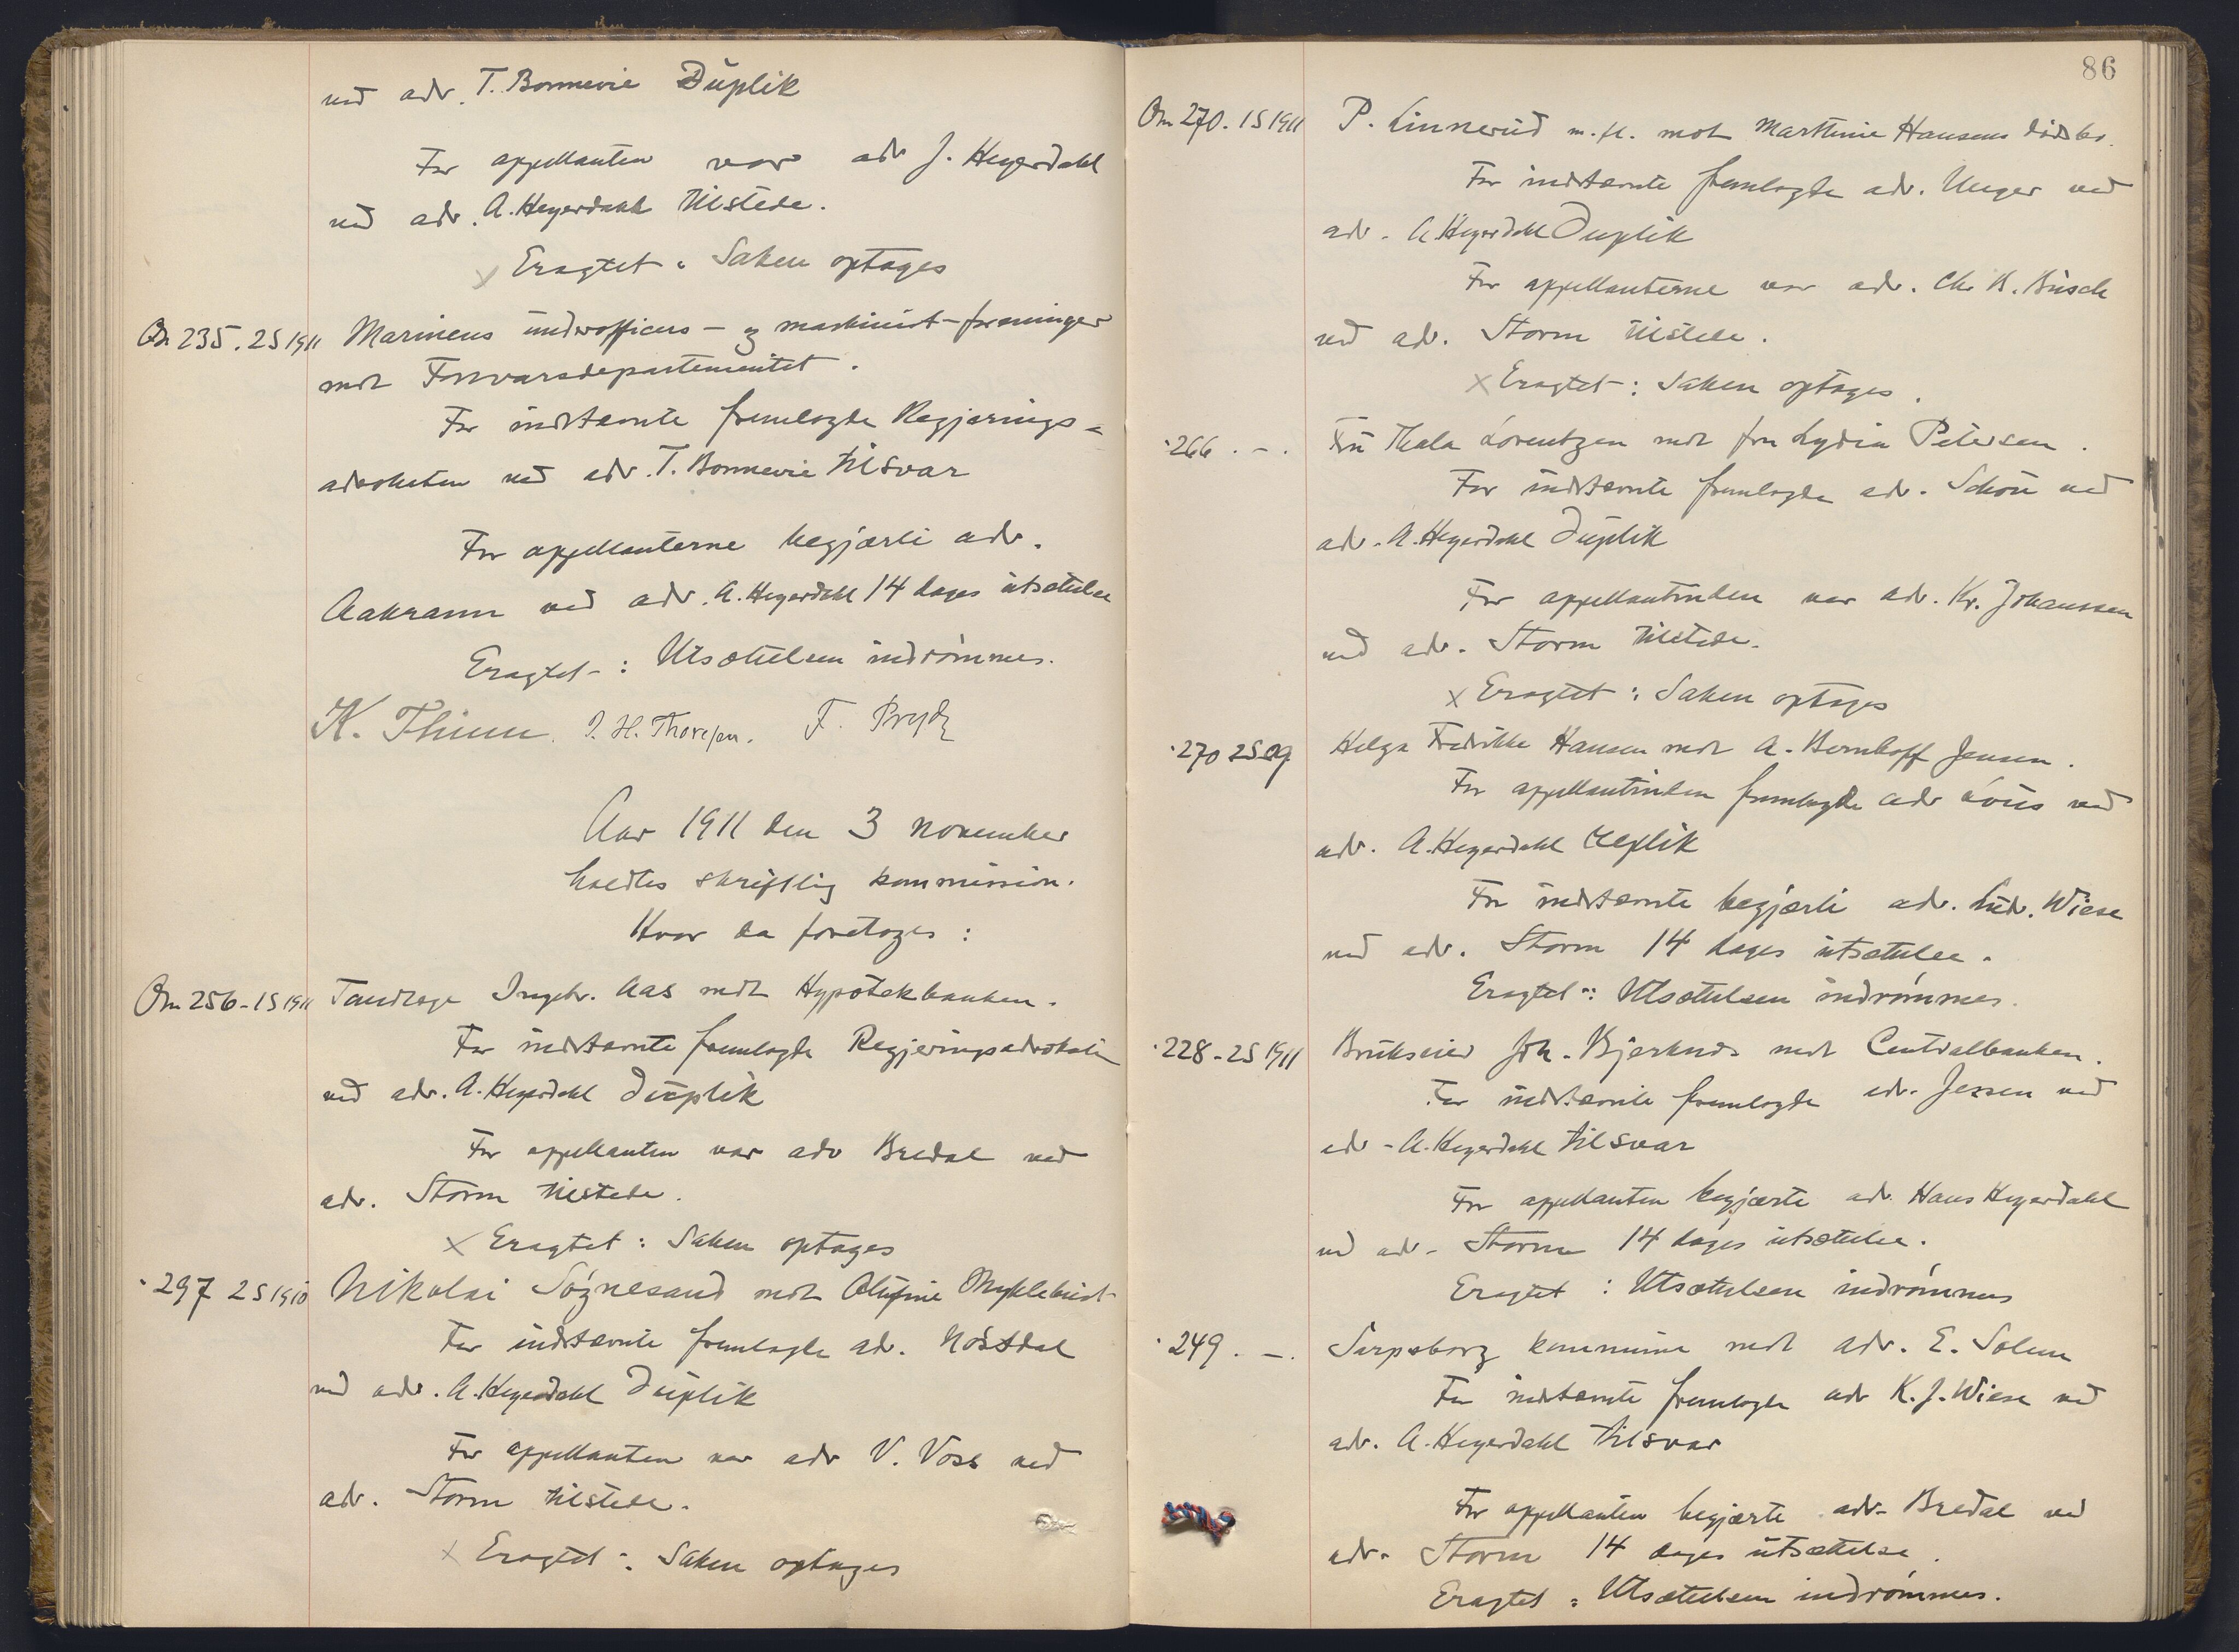 ved adv. T. Bonnevie Duplik
For appellanten var adv J. Heyerdahl
ved adv. A. Heyerdahl tilstede.
x Eragtet: Saken optages
Om 235. 2S 1911 Marinens underofficers- og maskinist-foreninger
mot Forsvarsdepartementet.
For indstevnte fremlagde Regjerings-
advokaten ved adv. T. Bonnevie tilsvar
For appellanterne begjærte adv.
Aakrann ved adv. A. Heyerdahl 14 dages utsættelse
Eragtet: Utsættelsen indrømmes.
K. Thinn. J. H. Thoresen. F. Prydz
Aar 1911 den 3 november
holdtes skriftlig kommission.
Hvor da foretoges:
Om 256-1S 1911 Tandlæge Ingebr. Aas mot Hypotekbanken.
For indstevnte fremlagde Regjeringsadvokaten
ved adv. A. Heyerdahl Duplik
For appellanten var adv Bredal ved
adv. Storm tilstede.
x Eragtet: Saken optages
" 297 2S 1910 Nikolai Søgnesand mot Olufine Myklebust
For indstevnte fremlagde adv. Nøstdal
ved adv. A. Heyerdahl Duplik
For appellanten var adv V. Voss ved
adv. Storm tilstede.
x Eragtet: Saken optages
86
Om 270. 1S 1911 P. Linnerud m.fl. mot Marthinie Hansens dødsbo.
For indstevnte fremlagde adv. Unger ved
adv. A. Heyerdahl Duplik
For appellanterne var adv. Chr. B. Busch
ved adv. Storm tilstede.
x Eragtet: Saken optages.
" 266. - . Fru Thala Lorentzen mot fru Lydia Petersen.
For indstevnte fremlagde adv. Schou ved
adv. A. Heyerdahl Duplik
For appellantinden var adv. Kr. Johanssen
ved adv. Storm tilstede.
x Eragtet: Saken optages
" 270 2S 09 Helga Fredrikke Hansen mot A. Bernhoff Jensen.
For appellantinden fremlagde adv Lous ved
adv. A. Heyerdahl Replik
For indstevnte begjærte adv. Ludv. Wiese
ved adv. Storm 14 dages utsættelse.
Eragtet: Utsættelsen indrømmes.
" 228-2S 1911 Brukseier Joh. Bjerknes mot Centralbanken.
For indstevnte fremlagde adv. Jessen ved
adv. A. Heyerdahl tilsvar
For appellanten begjærte adv. Hans Heyerdahl
ved adv. Storm 14 dages utsættelse.
Eragtet: Utsættelsen indrømmes
" 249. - . Sarpsborg kommune mot adv. E. Solem
For indstevnte fremlagde adv K. J. Wiese ved
adv. A. Heyerdahl tilsvar
For appellanten begjærte adv. Bredal ved
adv. Storm 14 dages utsættelse.
Eragtet: Utsættelsen indrømmes.